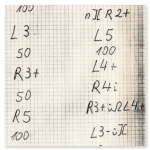 100
L 3
50
R3+
50
R5
100
nЖ R2+
L5
100
L4+
R4i
R3+iΩL4+
L3-iЖ